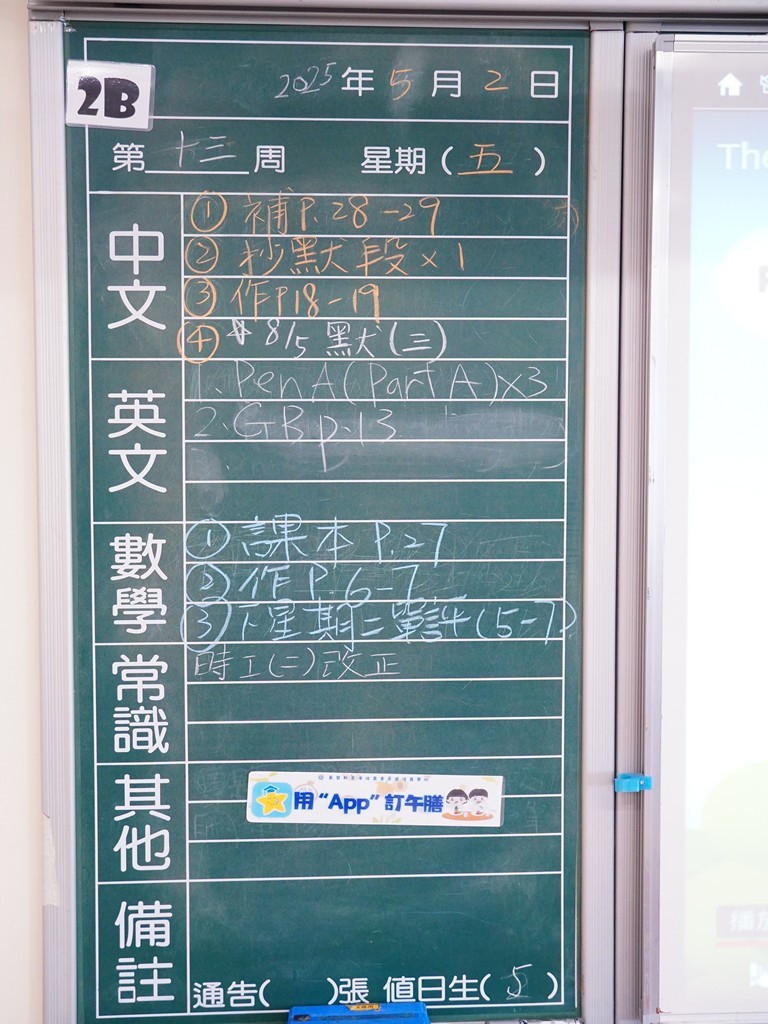 2B
2025年5月2日
第十三周 星期(五)
中文
① 補P.28-29
② 抄默段×1
③ 作P18-19
④ 8/5 默(三)
英文
1. Pen A (Part A)×3
2. GB p.13
數學
① 課本 P.27
② 作P.6-7
③ 下星期二單評(5-7)
常識
時工(二)改正
其他
用“App”訂午膳
備註
通告( )張 值日生(5)
The
播放